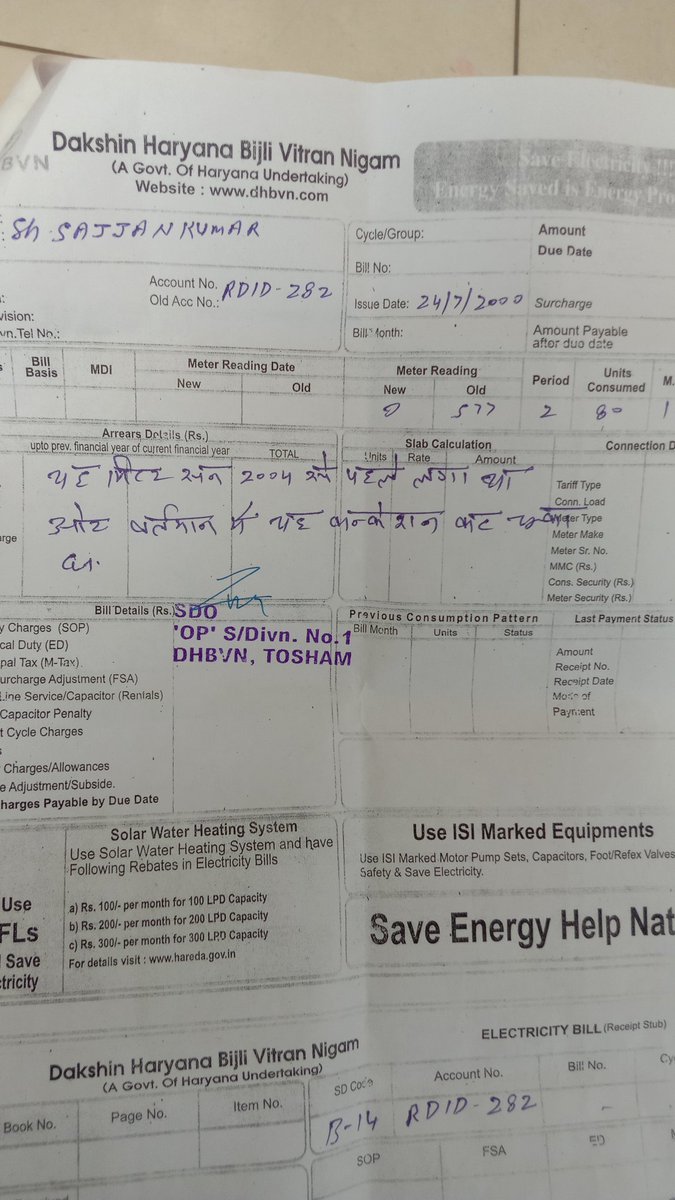 BVN
Dakshin Haryana Bijli Vitran Nigam
(A Govt. Of Haryana Undertaking)
Website : www.dhbvn.com
Save Electricity !!!
Energy Saved is Energy Pro
Sh SAJJAN KUMAR
Account No. RDID-282
Old Acc No.:
vision:
vn.Tel No.:
Cycle/Group:
Bill No:
Issue Date: 24/7/2000
Bill Month:
Amount
Due Date
Surcharge
Amount Payable
after due date
Bill Basis MDI Meter Reading Date Meter Reading Period Units Consumed M.
New Old New Old
0 577 2 80 1
Arrears Details (Rs.) Slab Calculation Connection D
upto prev. financial year of current financial year TOTAL Units Rate Amount
यह मिटर सन 2004 से पहले लगा था
और वर्तमान में यह कनेक्शन कट चुका
arge
Tariff Type
Conn. Load
Meter Type
Meter Make
Meter Sr. No.
MMC (Rs.)
Cons. Security (Rs.)
Meter Security (Rs.)
Bill Details (Rs.)
SDO
'OP' S/Divn. No.1
DHBVN, TOSHAM
y Charges (SOP)
cal Duty (ED)
pal Tax (M-Tax).
urcharge Adjustment (FSA)
Line Service/Capacitor (Rentals)
Capacitor Penalty
t Cycle Charges
s
Charges/Allowances
e Adjustment/Subside.
harges Payable by Due Date
Previous Consumption Pattern Last Payment Status
Bill Month Units Status
Amount
Receipt No.
Receipt Date
Mode of
Payment
Use
FLs
Save
tricity
Solar Water Heating System
Use Solar Water Heating System and have
Following Rebates in Electricity Bills
a) Rs. 100/- per month for 100 LPD Capacity
b) Rs. 200/- per month for 200 LPD Capacity
c) Rs. 300/- per month for 300 LPD Capacity
For details visit : www.hareda.gov.in
Use ISI Marked Equipments
Use ISI Marked Motor Pump Sets, Capacitors, Foot/Refex Valves
Safety & Save Electricity.
Save Energy Help Nat
ELECTRICITY BILL (Receipt Stub)
Dakshin Haryana Bijli Vitran Nigam
(A Govt. Of Haryana Undertaking)
Book No. Page No. Item No.
SD Code Account No. Bill No. Cy
B-14 RDID-282 -
SOP FSA ED